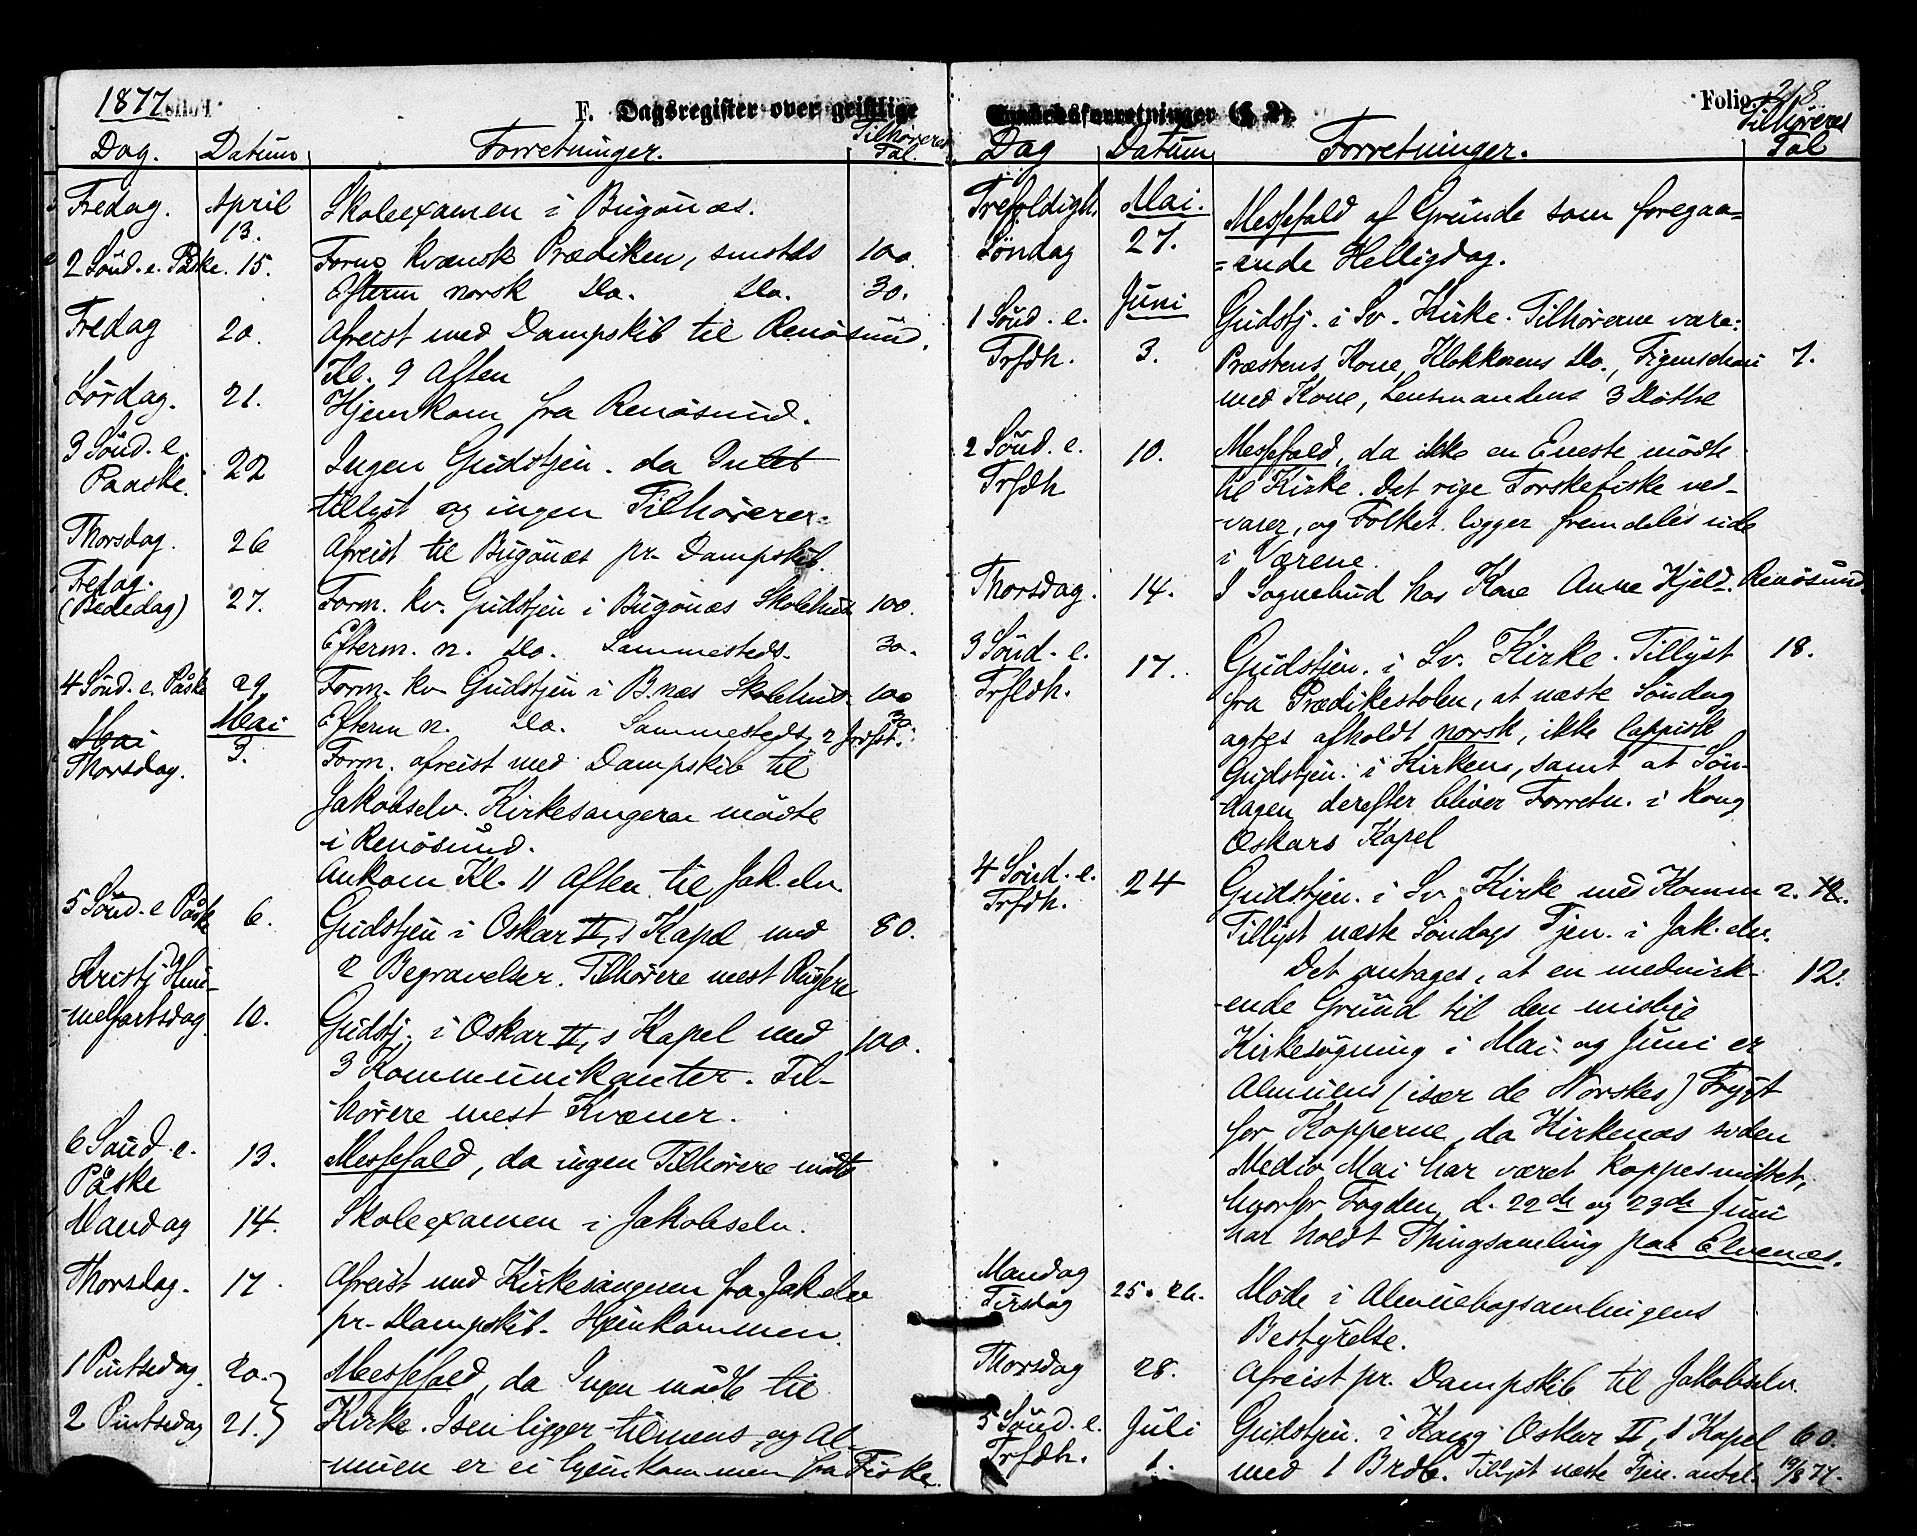 1877
F. Dagsregister over geistlige
Dag. Datum Forretninger. Tilhøreres Tal.
Fredag. April 13. Skoleexamen i Bugönæs.
2 Sönd. e. Påske. 15. Form. kvænsk Prædiken, smstds 100.
Efterm norsk Do. Do. 30.
Fredag 20. Afreist med Dampskib til Renösund.
Kl. 9 Aften
Lördag. 21. Hjemkom fra Renösund.
3 Sönd. e. Paaske. 22 Ingen Gudstjen. da Intet
tillyst og ingen Tilhörerer.
Thorsdag. 26 Afreist til Bugönæs pr. Dampskib.
Fredag. (Bededag) 27. Form. kv. Gudstjen i Bugönæs Skolehus 100.
Efterm. n. Do. Sammesteds. 30.
4 Sönd. e. Påske 29. Form. kv. Gudstjen i B.næs Skolehus. 100
Mai Efterm n. Do. Sammesteds, 2 30.
Mai
Thorsdag. 3. Form. afreist med Dampskib til
Jakobselv. Kirkesangeren mödte
i Renösund.
Ankom Kl. 11 Aften til Jak.elv.
5 Sönd. e Påske 6. Gudstjen i Oskar II,s Kapel med 80.
2 Begravelser. Tilhörere mest Russere
Kristi Him-
-melfartsdag 10. Gudstj. i Oskar II,s Kapel med 100.
3 Kommunikanter. Til-
-hörere mest Kvæner.
6 Sönd. e. Påske 13. Messefald, da ingen Tilhörere mödte
Mandag 14. Skoleexamen i Jakobselv.
Thorsdag. 17. Afreist med Kirkesangeren fra Jak.elv
pr. Dampskib. Hjemkommen.
1 Pintsedag. 20. Messefald, da Ingen mödte til
2 Pintsedag 21. Kirke. Isen ligger tilmens og Al-
-muen er ei hjemkommen fra Fiske.
Folio 218
Embedsforretninger (§ 2).
Dag Datum Forretninger. Tilhøreres Tal
Trefoldigh. Mai. Messefald af Grunde som foregaa=
Söndag 27. =ende Helligdag.
1 Sönd. e. Juni Gudstj. i Sv. Kirke. Tilhörerne vare:
Trfdh. 3. Præstens Kone, Klokkerens Do., Figenschau 7.
med Kone, Lensmandens 3 Döttre
2 Sönd. e. 10. Messefald, da ikke en Eneste mödte
Trfdh til Kirke. Det rige Torskefiske ved-
-varer, og Folket ligger fremdeles ude
i Værene.
Thorsdag. 14. I Sognebud hos Kone Anne Hjeld. Renösund.
3 Sönd. e. 17. Gudstjen. i Sv. Kirke. Tillyst 18.
Trfldh. fra Prædikestolen, at næste Söndag
agtes afholdt norsk, ikke lappisk
Gudstjen. i Kirken, samt at Sön-
-dagen derefter bliver Forretn. i Kong
Oskars Kapel
4 Sönd. e. 24 Gudstjen. i Sv. Kirke med Komm 2. 12.
Trfdh. Tillyst næste Söndags Tjen. i Jak.elv.
Det antages, at en medvirk- 12.
-ende Grund til den mislige
Kirkesögning i Mai og Juni er
Almuens (især de Norskes) Frygt
for Kopperne, da Kirkenæs siden
Medio Mai har været koppesmittet,
hvorfor Fogden d. 22de og 23de Juni
har holdt Thingsamling paa Elvenæs.
Mandag
Tirsdag 25. 26. Möde i Almuebogsamlingens
Bestyrelse.
Thorsdag 28. Afreist pr. Dampskib til Jakobselv.
5 Sönd. e. Juli Gudstjen. i Kong Oskar II,s Kapel 60.
Trfdh. 1. med 1 Brdb. Tillyst næste Tjen. antal. 12/8 77.